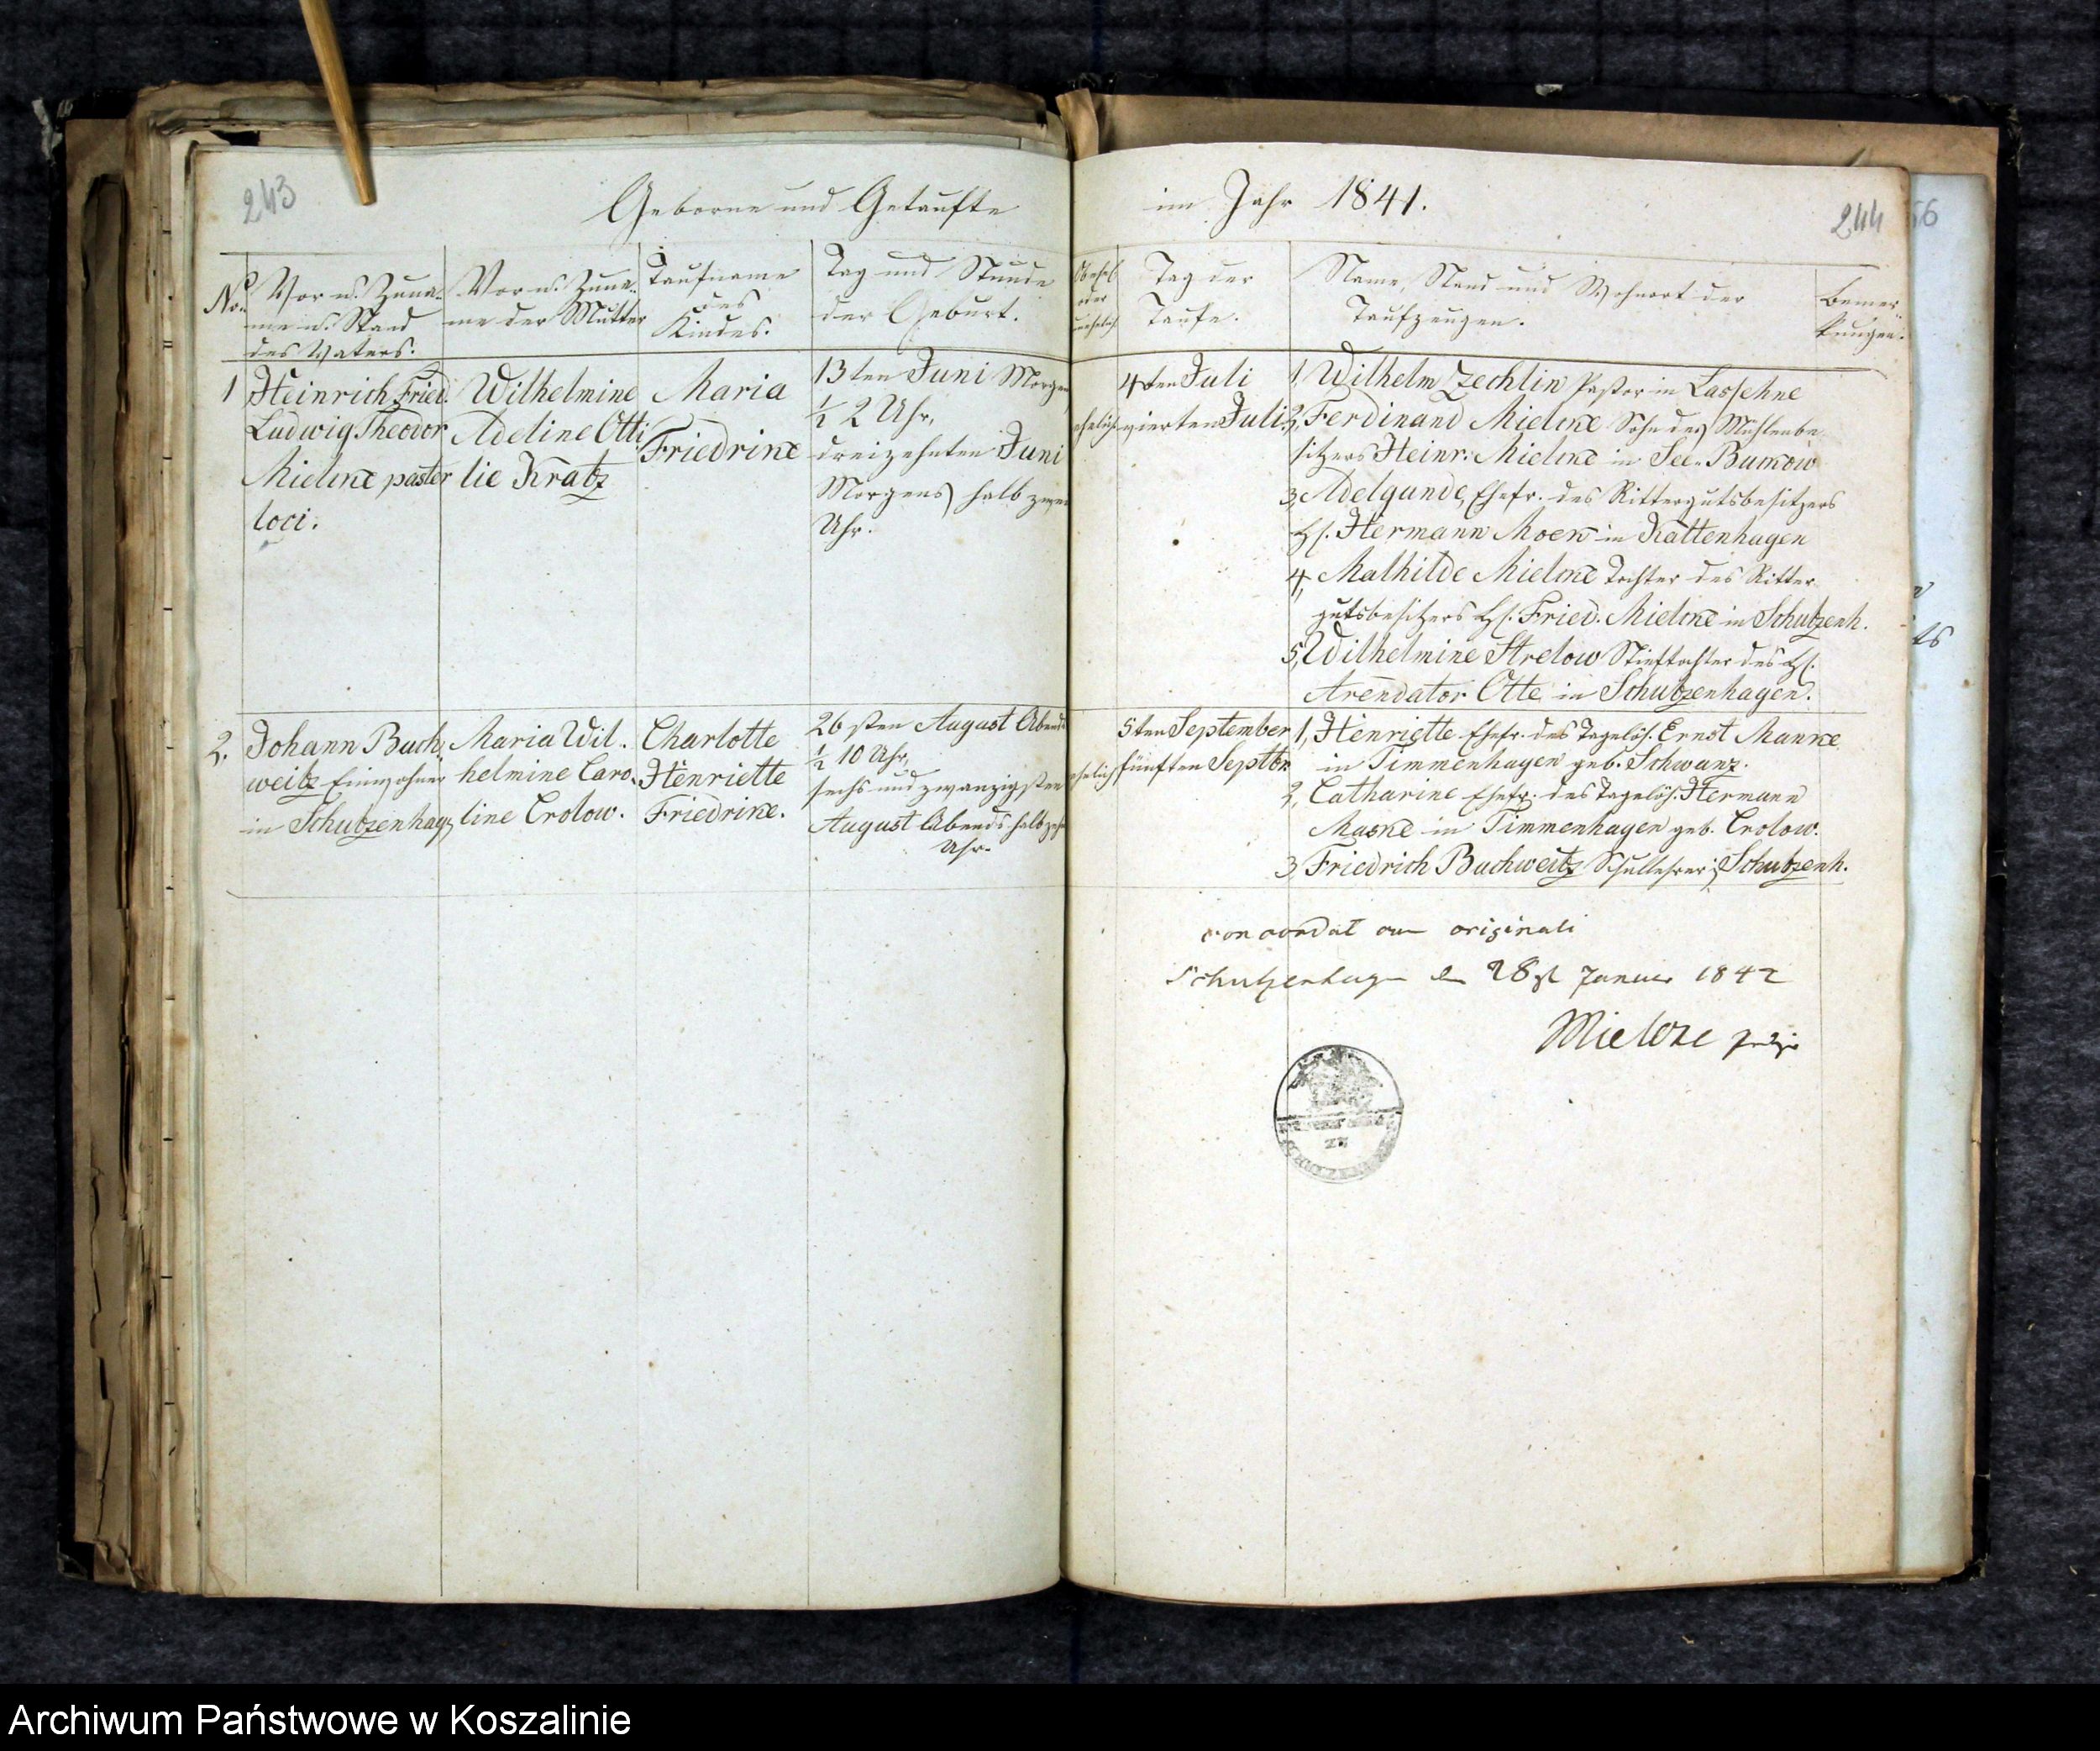 243
Geborne und Getaufte
No.
Vor u. Zuna-
me u. Stand
des Vaters.
Vor u. Zuna-
me der Mutter
Taufname
des
Kindes.
Tag und Stunde
der Geburt.
1
Heinrich Fried.
Ludwig Theodor
Mielcke pastor
loci.
Wilhelmine
Adeline Otti
lie Kratz
Maria
Friedrike
13ten Juni Morgens
½ 2 Uhr,
dreizehnten Juni
Morgens halb zwei
Uhr.
2.
Johann Buch
weitz Einwohner
in Schulzenhag.
Maria Wil.
helmine Caro.
line Crolow.
Charlotte
Henriette
Friedrike.
26sten August Abends
½ 10 Uhr,
sechs und zwanzigsten
August Abends halb zehn
Uhr.
im Jahr 1841.
244
56
oder
Tag der
Taufe.
Name, Stand und Wohnort der
Taufzeugen.
Bemer-
kungen.
ehelich
4ten Juli
vierten Juli.
1, Wilhelm Zechlin Pastor in Lassehne
2, Ferdinand Mielcke Sohn des Mühlenbe
sitzers Heinr. Mielcke in See-Bukow
3, Adelgunde, Ehefr. des Rittergutsbesitzers
H. Hermann Moek in Kattenhagen
4, Mathilde Mielcke Tochter des Ritter
gutsbesitzers H. Fried. Mielcke in Schulzenh.
5, Wilhelmine Strelow Stieftochter des H.
Arendator Otte in Schulzenhagen.
ehelich
5ten September
fünften Septbr.
1, Henriette Ehefr. des Tagelöh. Ernst Manke
in Timmenhagen geb. Schwanz.
2, Catharine Ehefr. des Tagelöh. Hermann
Maske in Timmenhagen geb. Crolow.
3, Friedrich Buchweitz Schullehrer in Schulzenh.
concordat cum originali
Schulzenhagen den 28st Januar 1842
Mielcke
ZU
Archiwum Państwowe w Koszalinie